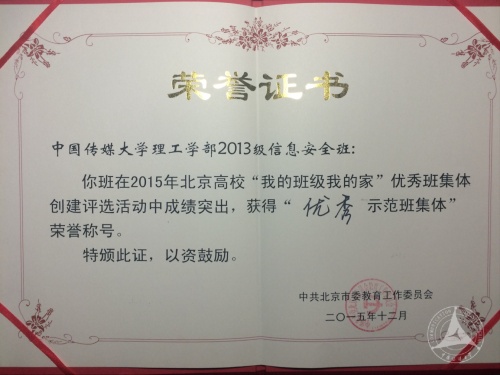 荣誉证书
中国传媒大学理工学部2013级信息安全班：
你班在2015年北京高校“我的班级我的家”优秀班集体
创建评选活动中成绩突出，获得“优秀示范班集体”
荣誉称号。
特颁此证，以资鼓励。
中共北京市委教育工作委员会
二〇一五年十二月